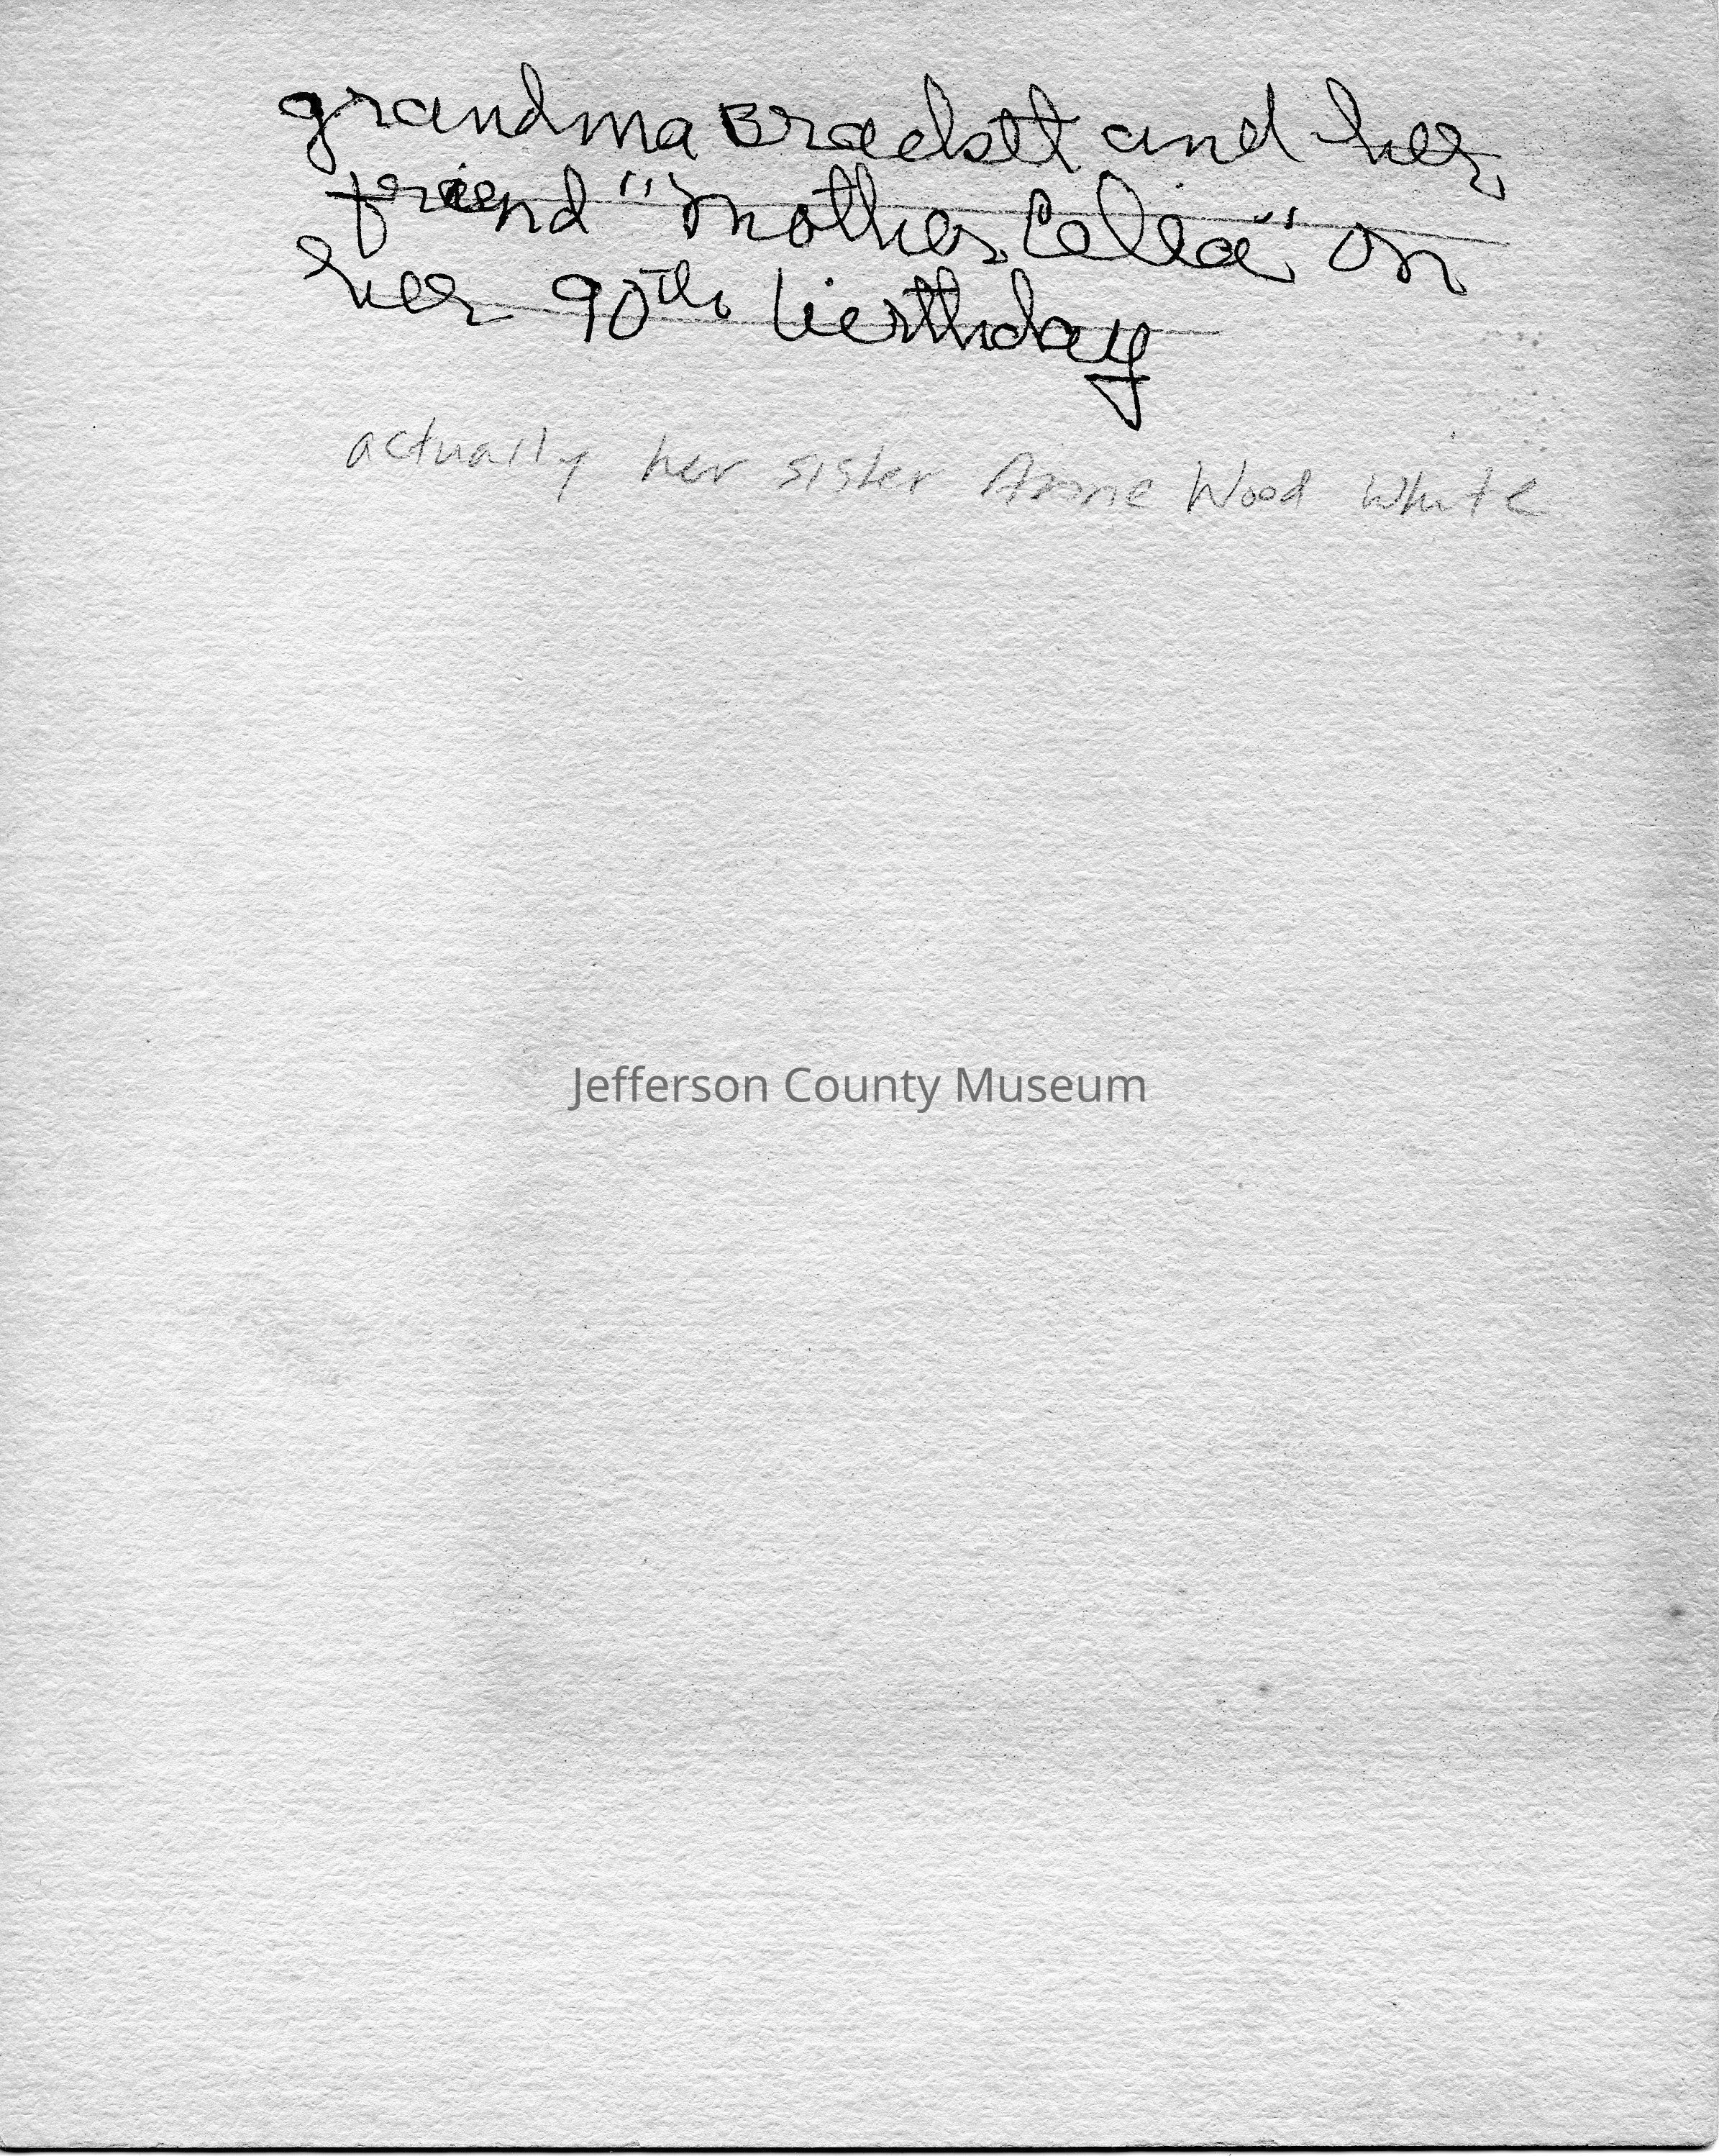 grandma Brackett and her
friend "mother Celia" on
her 90th birthday
actually her sister Anne Wood White
Jefferson County Museum